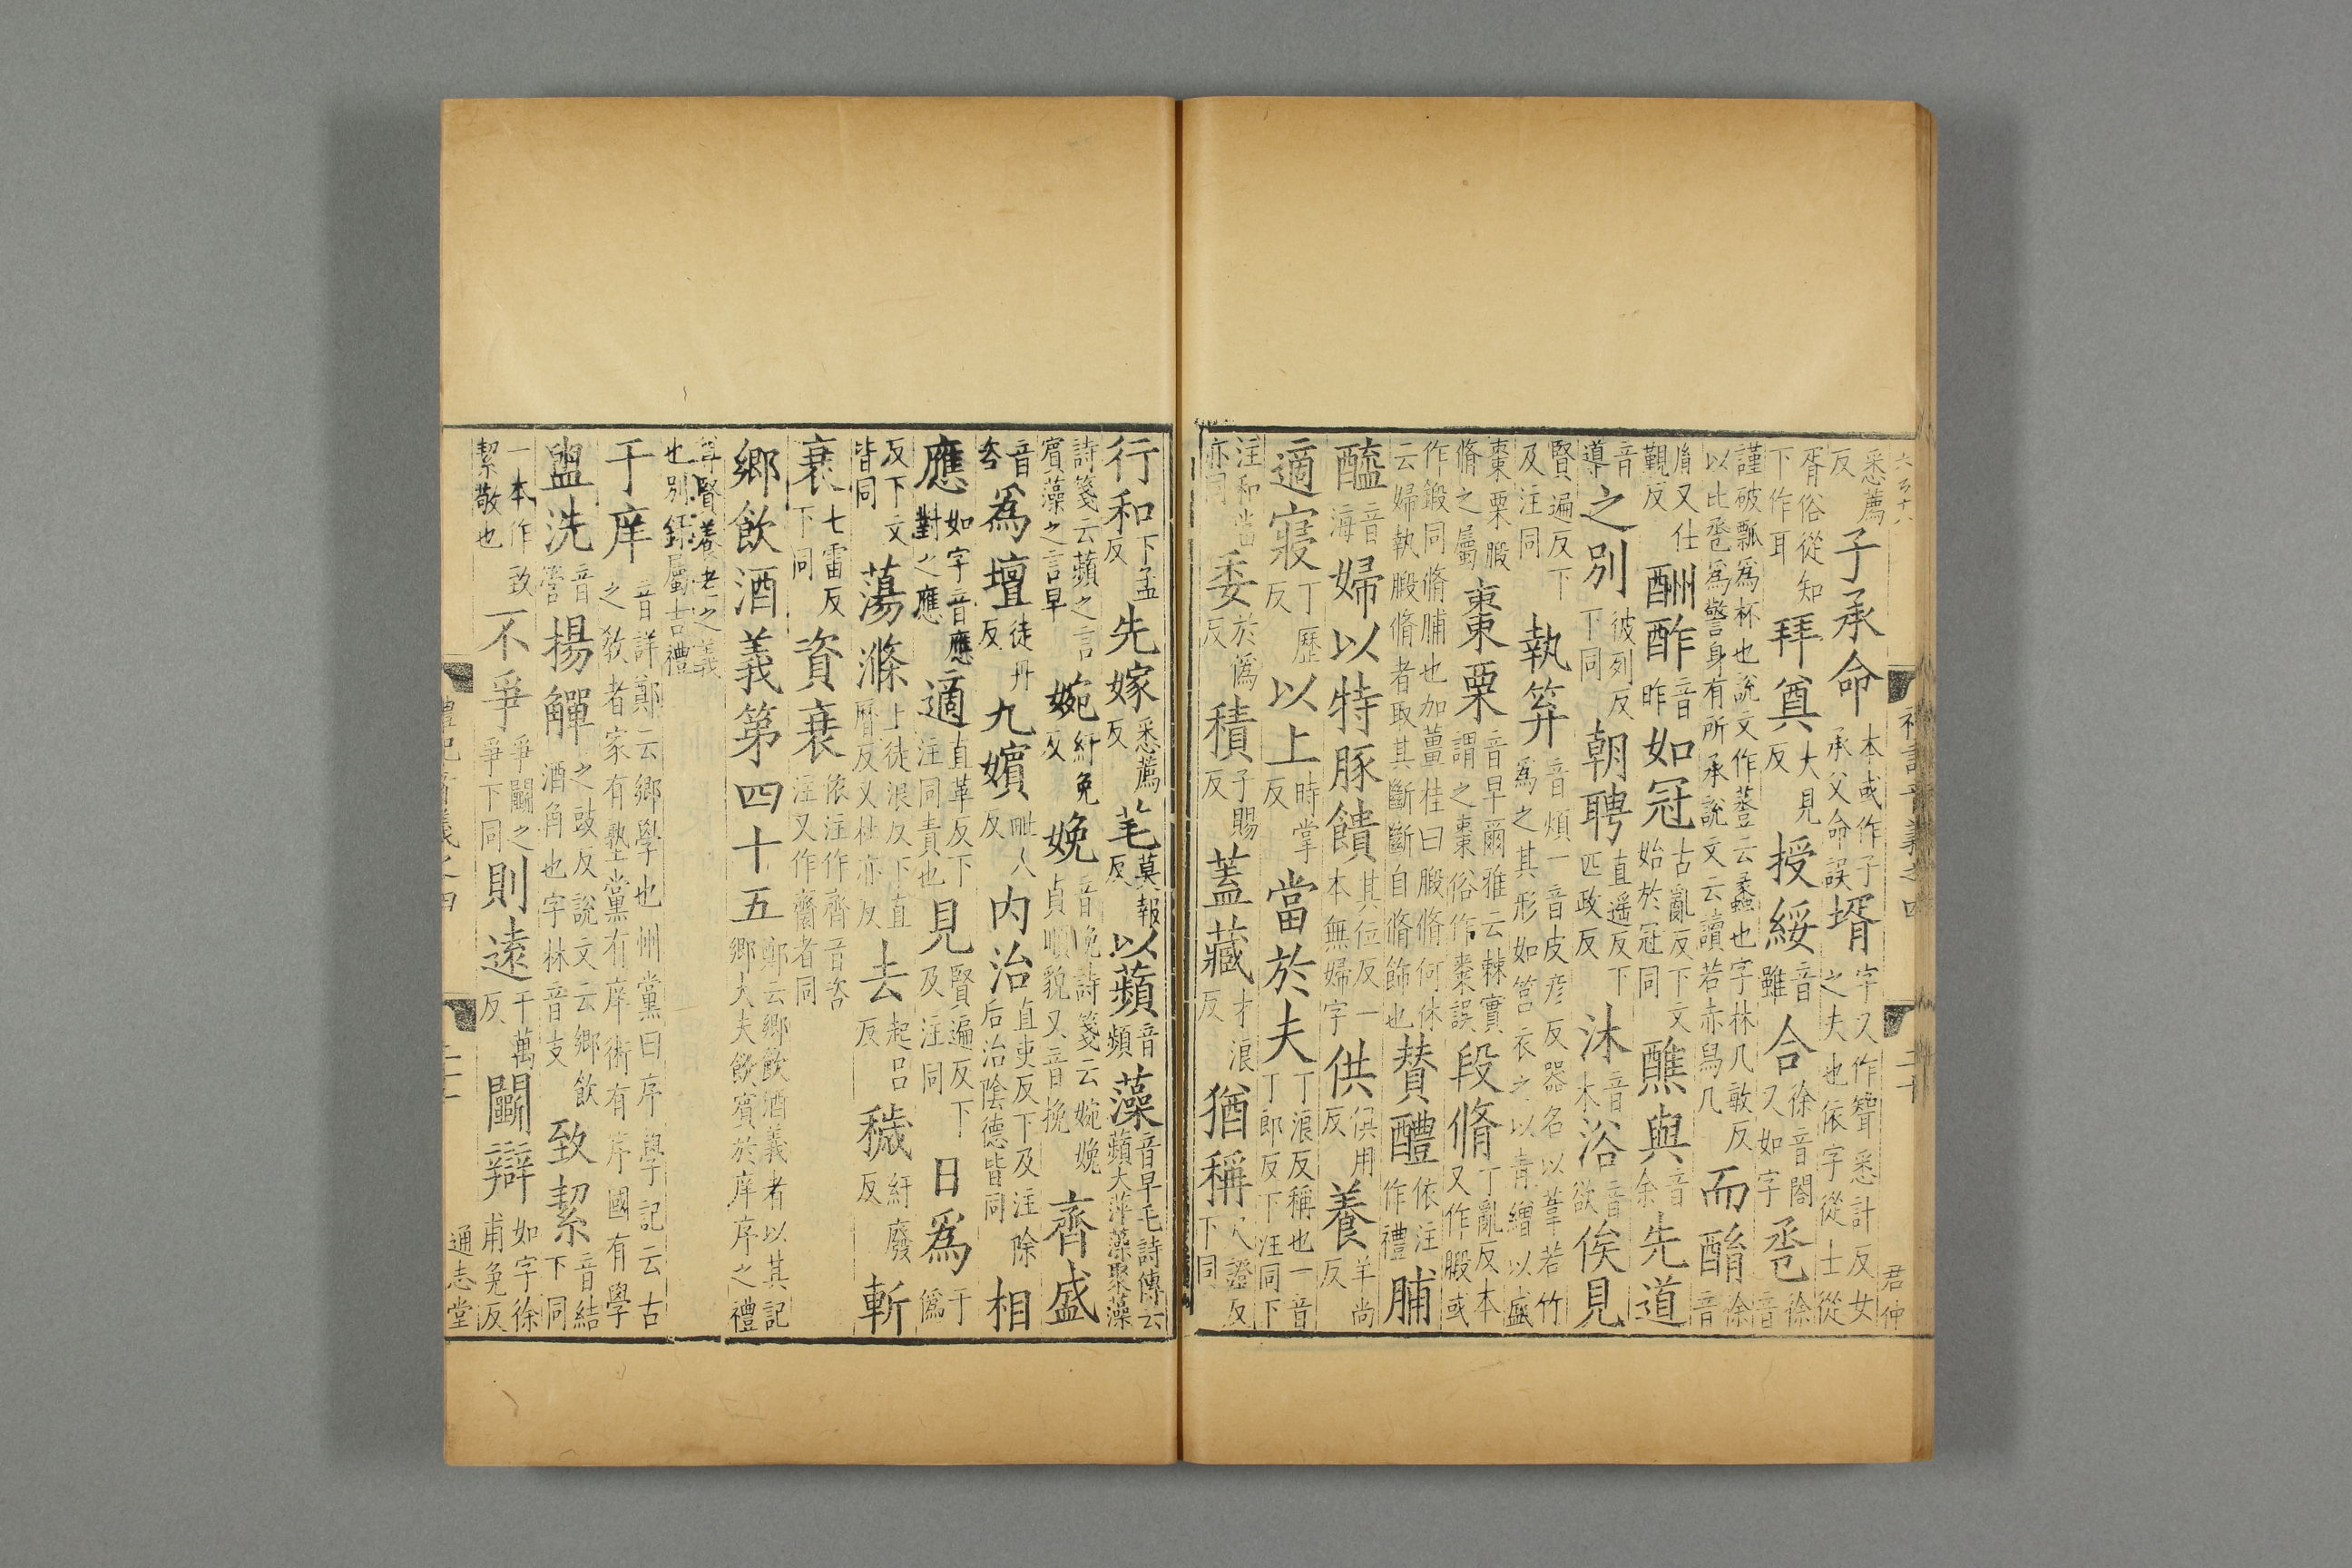 悉薦反子承命本或作子承父命誤壻字又作聟悉計反女之夫也依字從士從
胥俗從知下作耳拜奠大見反授綏音雖合徐音閤又如字巹徐音
謹破瓢為杯也說文作𧯷云蠡也字林几敏反以此巹為警身有所承說文云讀若赤舄几而酳徐音
胤又仕覲反酬酢音昨如冠古亂反下文始於冠同醮與音余先道
音導之別彼列反下同朝聘直遥反下匹政反沐音木浴音欲俟見
賢遍反下及注同執笲音煩一音皮彦反器名以葦若竹為之其形如筥衣之以青繒以盛
棗栗腶脩之屬棗栗音早爾雅云棘實謂之棗俗作枣誤段脩丁亂反本又作腶或
作鍛同脩脯也加薑桂曰腶脩何休云婦執腶脩者取其斷斷自脩飾也賛醴依注作禮脯
醢音海婦以特豚饋其位反一本無婦字供俱用反養羊尚反
適寢丁歷反以上時掌反當於夫丁浪反稱也一音丁郎反下注同下
注和當亦同委於偽反積子賜反蓋藏才浪反猶稱尺證反下同
禮記音義之四
二十
君仲
行和下孟反先嫁悉薦反芼莫報反以蘋音頻藻音早毛詩傳云蘋大蓱藻聚藻
詩箋云蘋之言賓藻之言早婉紆免反娩音晚詩箋云婉娩貞順貌又音挽齊盛
音咨為壇徒丹反九嬪毗人反内治直吏反下及注除后治陰德皆同相
應如字音應對之應適直革反下注同責也見賢遍反下及注同日為于偽
反下文皆同蕩滌上徒浪反下直歷反又杜亦反去起呂反穢紆廢反斬
衰七雷反下同資衰依注作齊音咨注又作齌者同
鄉飲酒義第四十五鄭云鄉飲酒義者以其記鄉大夫飲賓於庠序之禮
尊賢養老之義也別錄屬吉禮
于庠音詳鄭云鄉學也州黨曰序學記云古之敎者家有塾黨有庠術有序國有學
盥洗音管揚觶之豉反說文云鄉飲酒角也字林音支致絜音結下同
一本作致絜敬也不爭爭鬬之爭下同則遠于萬反鬬辯如字徐甫免反
通志堂